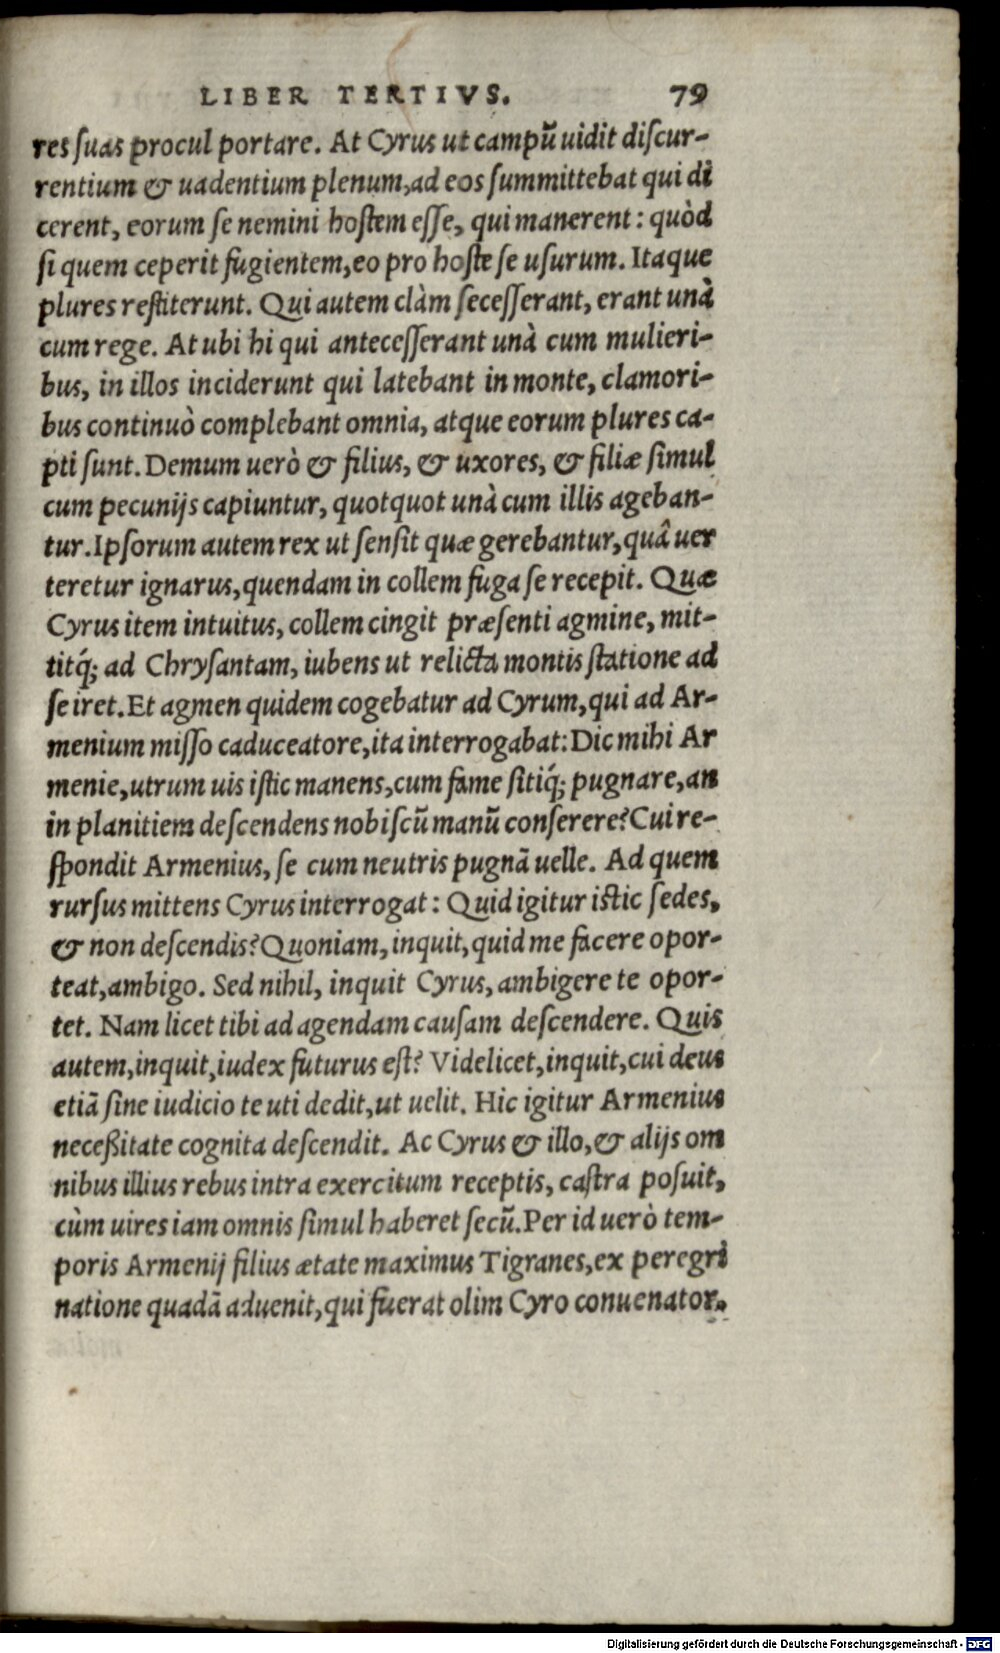 LIBER TERTIVS. 79
res ſuas procul portare. At Cyrus ut campũ uidit diſcur-
rentium & uadentium plenum, ad eos ſummittebat qui di
cerent, eorum ſe nemini hoſtem eſſe, qui manerent: quòd
ſi quem ceperit fugientem, eo pro hoſte ſe uſurum. Itaque
plures reſtiterunt. Qui autem clàm ſeceſſerant, erant unà
cum rege. At ubi hi qui anteceſſerant unà cum mulieri-
bus, in illos inciderunt qui latebant in monte, clamori-
bus continuò complebant omnia, atque eorum plures ca-
pti ſunt. Demum uerò & filius, & uxores, & filiæ ſimul
cum pecunijs capiuntur, quotquot unà cum illis ageban-
tur. Ipſorum autem rex ut ſenſit quæ gerebantur, quâ uer
teretur ignarus, quendam in collem fuga ſe recepit. Quæ
Cyrus item intuitus, collem cingit præſenti agmine, mit-
titq́; ad Chryſantam, iubens ut relicta montis ſtatione ad
ſe iret. Et agmen quidem cogebatur ad Cyrum, qui ad Ar-
menium miſſo caduceatore, ita interrogabat: Dic mihi Ar
menie, utrum uis iſtic manens, cum fame ſitiq́; pugnare, an
in planitiem deſcendens nobiſcũ manũ conſerere? Cui re-
ſpondit Armenius, ſe cum neutris pugnã uelle. Ad quem
rurſus mittens Cyrus interrogat: Quid igitur iſtic ſedes,
& non deſcendis? Quoniam, inquit, quid me facere opor-
teat, ambigo. Sed nihil, inquit Cyrus, ambigere te opor-
tet. Nam licet tibi ad agendam cauſam deſcendere. Quis
autem, inquit, iudex futurus eſt? Videlicet, inquit, cui deus
etiã ſine iudicio te uti dedit, ut uelit. Hic igitur Armenius
neceßitate cognita deſcendit. Ac Cyrus & illo, & alijs om
nibus illius rebus intra exercitum receptis, caſtra poſuit,
cùm uires iam omnis ſimul haberet ſecũ. Per id uerò tem-
poris Armenij filius ætate maximus Tigranes, ex peregri
natione quadã aduenit, qui fuerat olim Cyro conuenator.
Digitalisierung gefördert durch die Deutsche Forschungsgemeinschaft - DFG